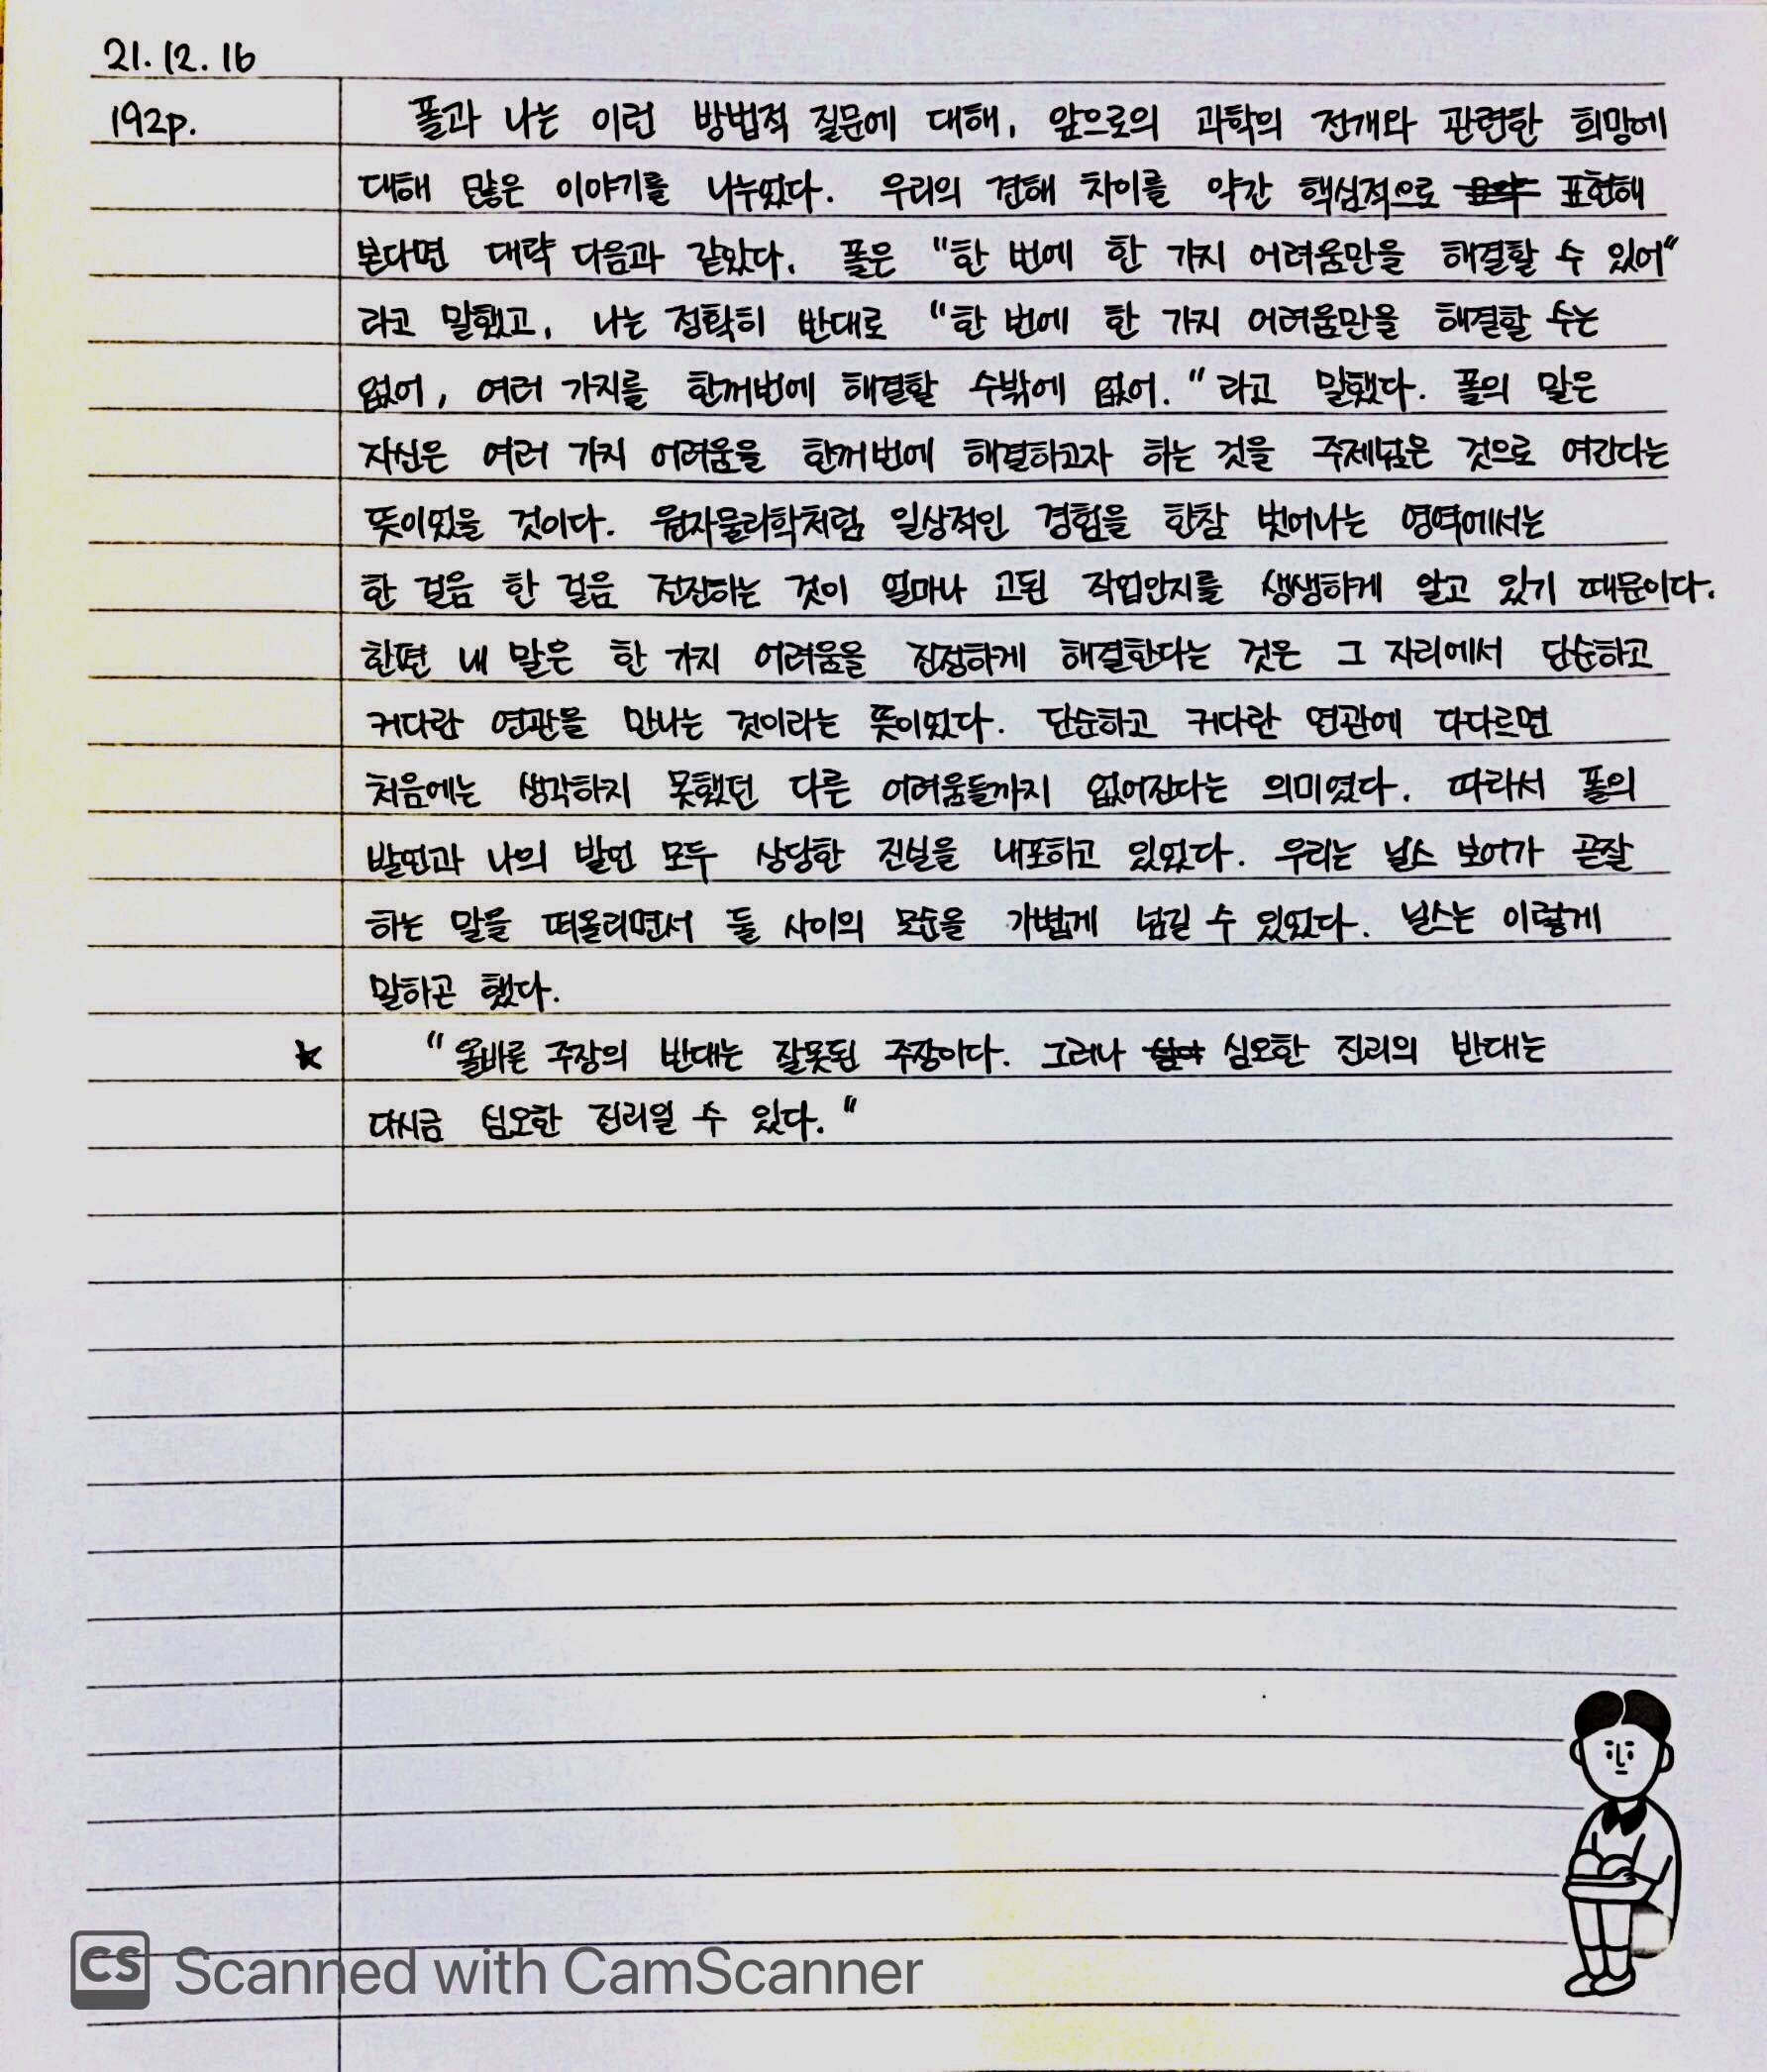 21.12.16
192p.
폴과 나는 이런 방법적 질문에 대해, 앞으로의 과학의 전개와 관련한 희망에
대해 많은 이야기를 나누었다. 우리의 견해 차이를 약간 핵심적으로 표현해
본다면 대략 다음과 같았다. 폴은 "한 번에 한 가지 어려움만을 해결할 수 있어"
라고 말했고, 나는 정확히 반대로 "한 번에 한 가지 어려움만을 해결할 수는
없어, 여러 가지를 한꺼번에 해결할 수밖에 없어." 라고 말했다. 폴의 말은
자신은 여러 가지 어려움을 한꺼번에 해결하고자 하는 것을 주제넘은 것으로 여긴다는
뜻이었을 것이다. 원자물리학처럼 일상적인 경험을 한참 벗어나는 영역에서는
한 걸음 한 걸음 전진하는 것이 얼마나 고된 작업인지를 생생하게 알고 있기 때문이다.
한편 내 말은 한 가지 어려움을 진정하게 해결한다는 것은 그 자리에서 단순하고
커다란 연관을 만나는 것이라는 뜻이었다. 단순하고 커다란 연관에 다다르면
처음에는 생각하지 못했던 다른 어려움들까지 없어진다는 의미였다. 따라서 폴의
발언과 나의 발언 모두 상당한 진실을 내포하고 있었다. 우리는 닐스 보어가 곧잘
하는 말을 떠올리면서 둘 사이의 모순을 가볍게 넘길 수 있었다. 닐스는 이렇게
말하곤 했다.
"올바른 주장의 반대는 잘못된 주장이다. 그러나 심오한 진리의 반대는
다시금 심오한 진리일 수 있다."
CS Scanned with CamScanner